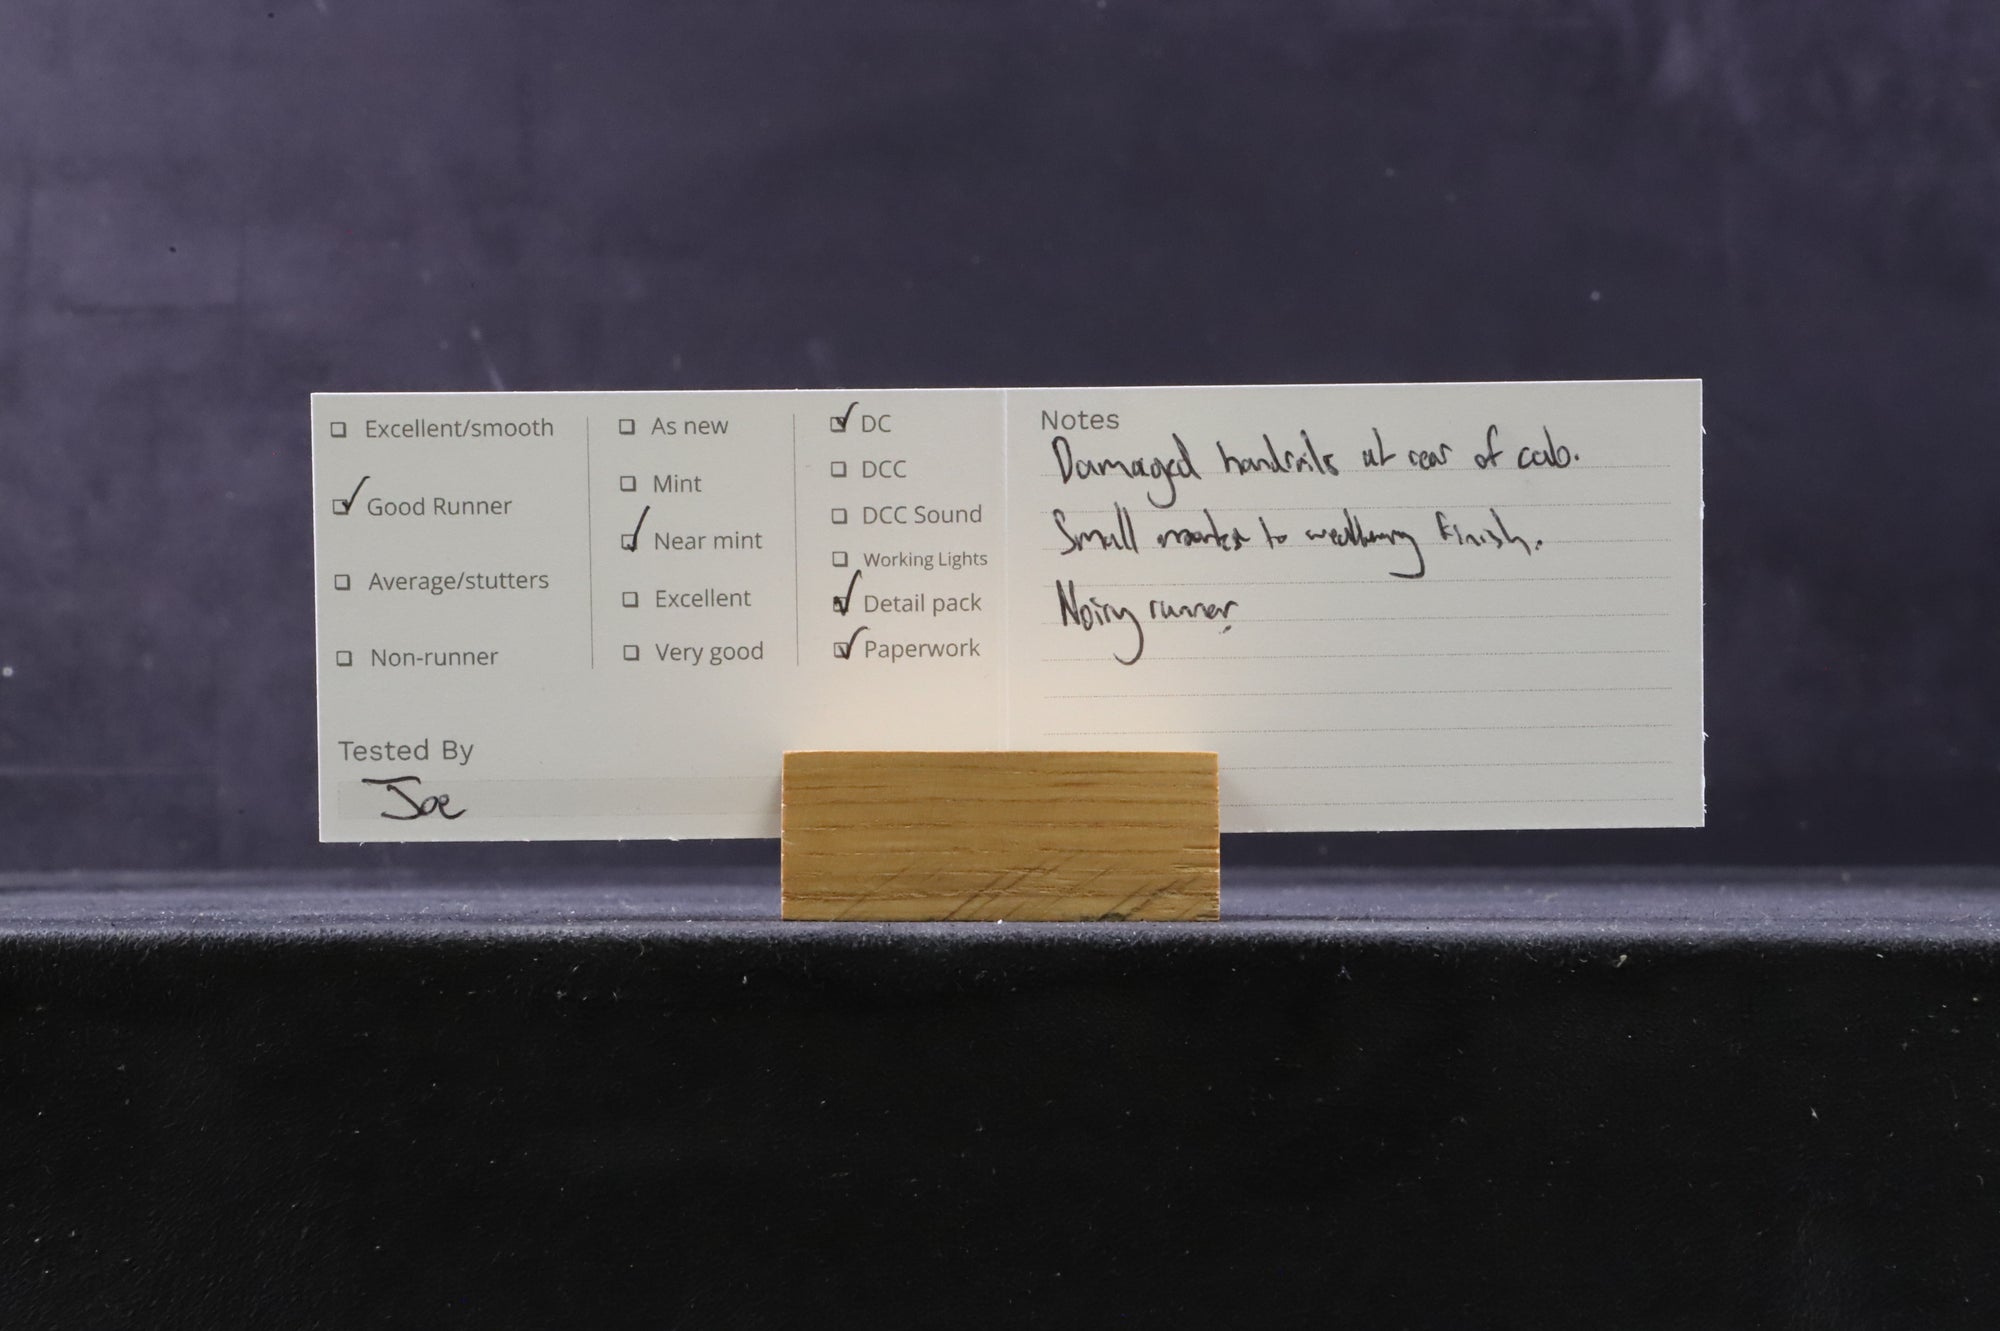 Excellent/smooth
Good Runner
Average/stutters
Non-runner
Tested By
Joe
As new
Mint
Near mint
Excellent
Very good
DC
DCC
DCC Sound
Working Lights
Detail pack
Paperwork
Notes
Damaged handrails at rear of cab.
Small marks to weathering finish.
Noisy runner